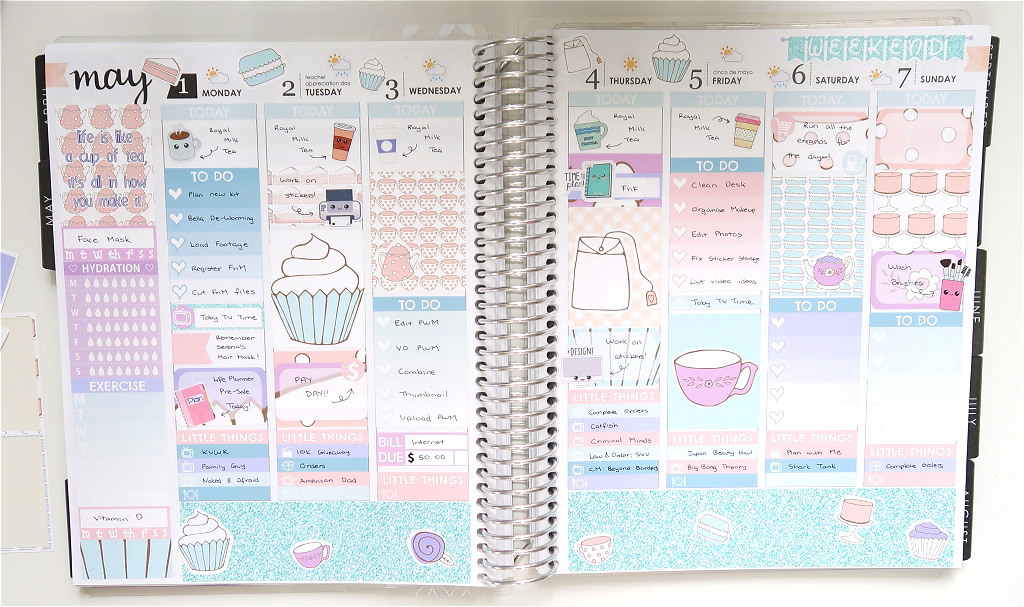 may
1
MONDAY
2
teacher
appreciation day
TUESDAY
3
WEDNESDAY
4
THURSDAY
5
cinco de mayo
FRIDAY
WEEKEND
6
SATURDAY
7
SUNDAY
APRIL
MAY
life is like
a cup of tea,
it's all in how
you make it
Face Mask
m t w th f s s
HYDRATION
M
T
W
T
F
S
S
EXERCISE
M
T
W
Vitamin D
m t w th f s s
TODAY
Royal
Milk
Tea
TO DO
Plan new kit
Bella De-Worming
Load Footage
Register FnM
Cut FnM files
Toby TV Time
Remember
Serena's
Hair Mask!
Life Planner
Pre-Sale
Today!
Plan
LITTLE THINGS
KUWK
Family Guy
Naked & Afraid
TODAY
Royal
Milk
Tea
Work on
stickers!
PAY
DAY!!
$
LITTLE THINGS
10K Giveaway
Orders
American Dad
TODAY
Royal
Milk
Tea
TO DO
Edit PWM
VO PWM
Combine
Thumbnail
Upload PWM
BILL
DUE
Internet
$ 50.00
LITTLE THINGS
TODAY
Royal
Milk
Tea
TIME to
plan!
FnF
DESIGN!
Work on
stickers!
LITTLE THINGS
Complete Orders
Catfish
Criminal Minds
Law & Order: SVU
CM: Beyond Borders
TODAY
Royal
Milk
Tea
TO DO
Clean Desk
Organise Makeup
Edit Photos
Fix Sticker Storage
List video ideas
Toby TV Time
LITTLE THINGS
Japan Beauty Haul
Big Bang Theory
TODAY
Run all the
errands for
the day!
TO DO
LITTLE THINGS
Plan with Me
Shark Tank
TODAY
Wash
Brushes
TO DO
LITTLE THINGS
Complete Orders
SEPTEMBER
JUNE
JULY
AUGUST